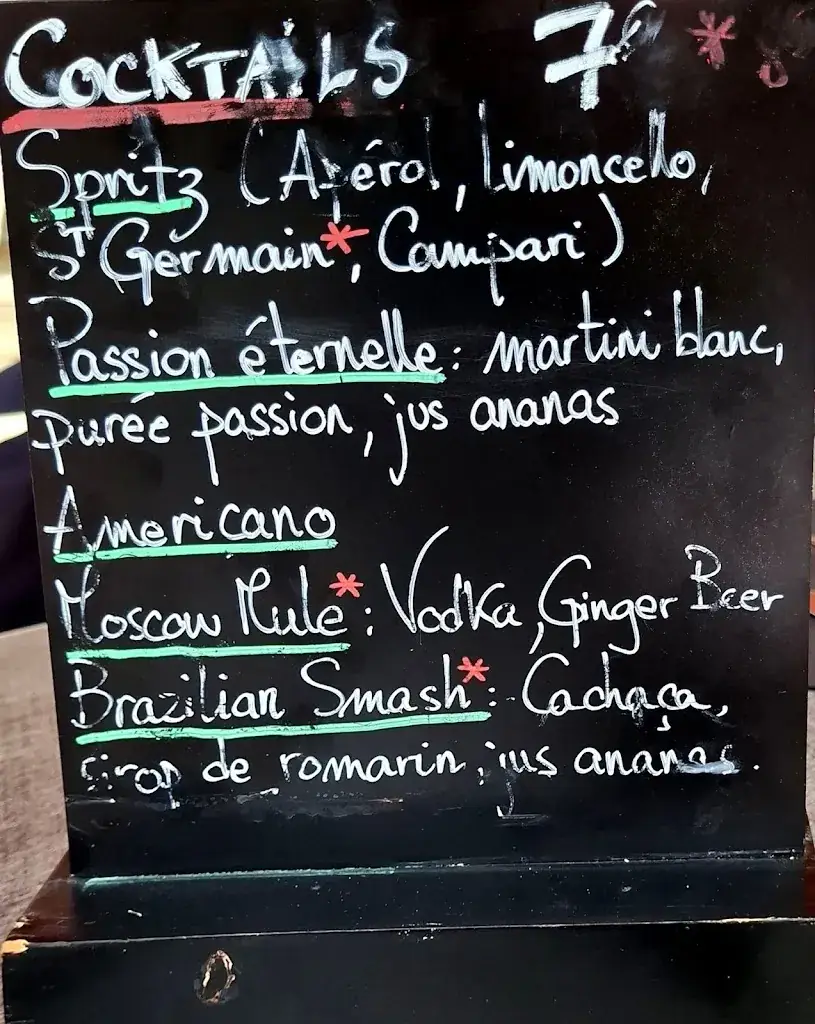 COCKTAILS 7€ *
Spritz (Apérol, Limoncello,
St Germain*, Campari)
Passion éternelle : martini blanc,
purée passion, jus ananas
Americano
Moscow Mule* : Vodka, Ginger Beer
Brazilian Smash* : Cachaça,
sirop de romarin, jus ananas.